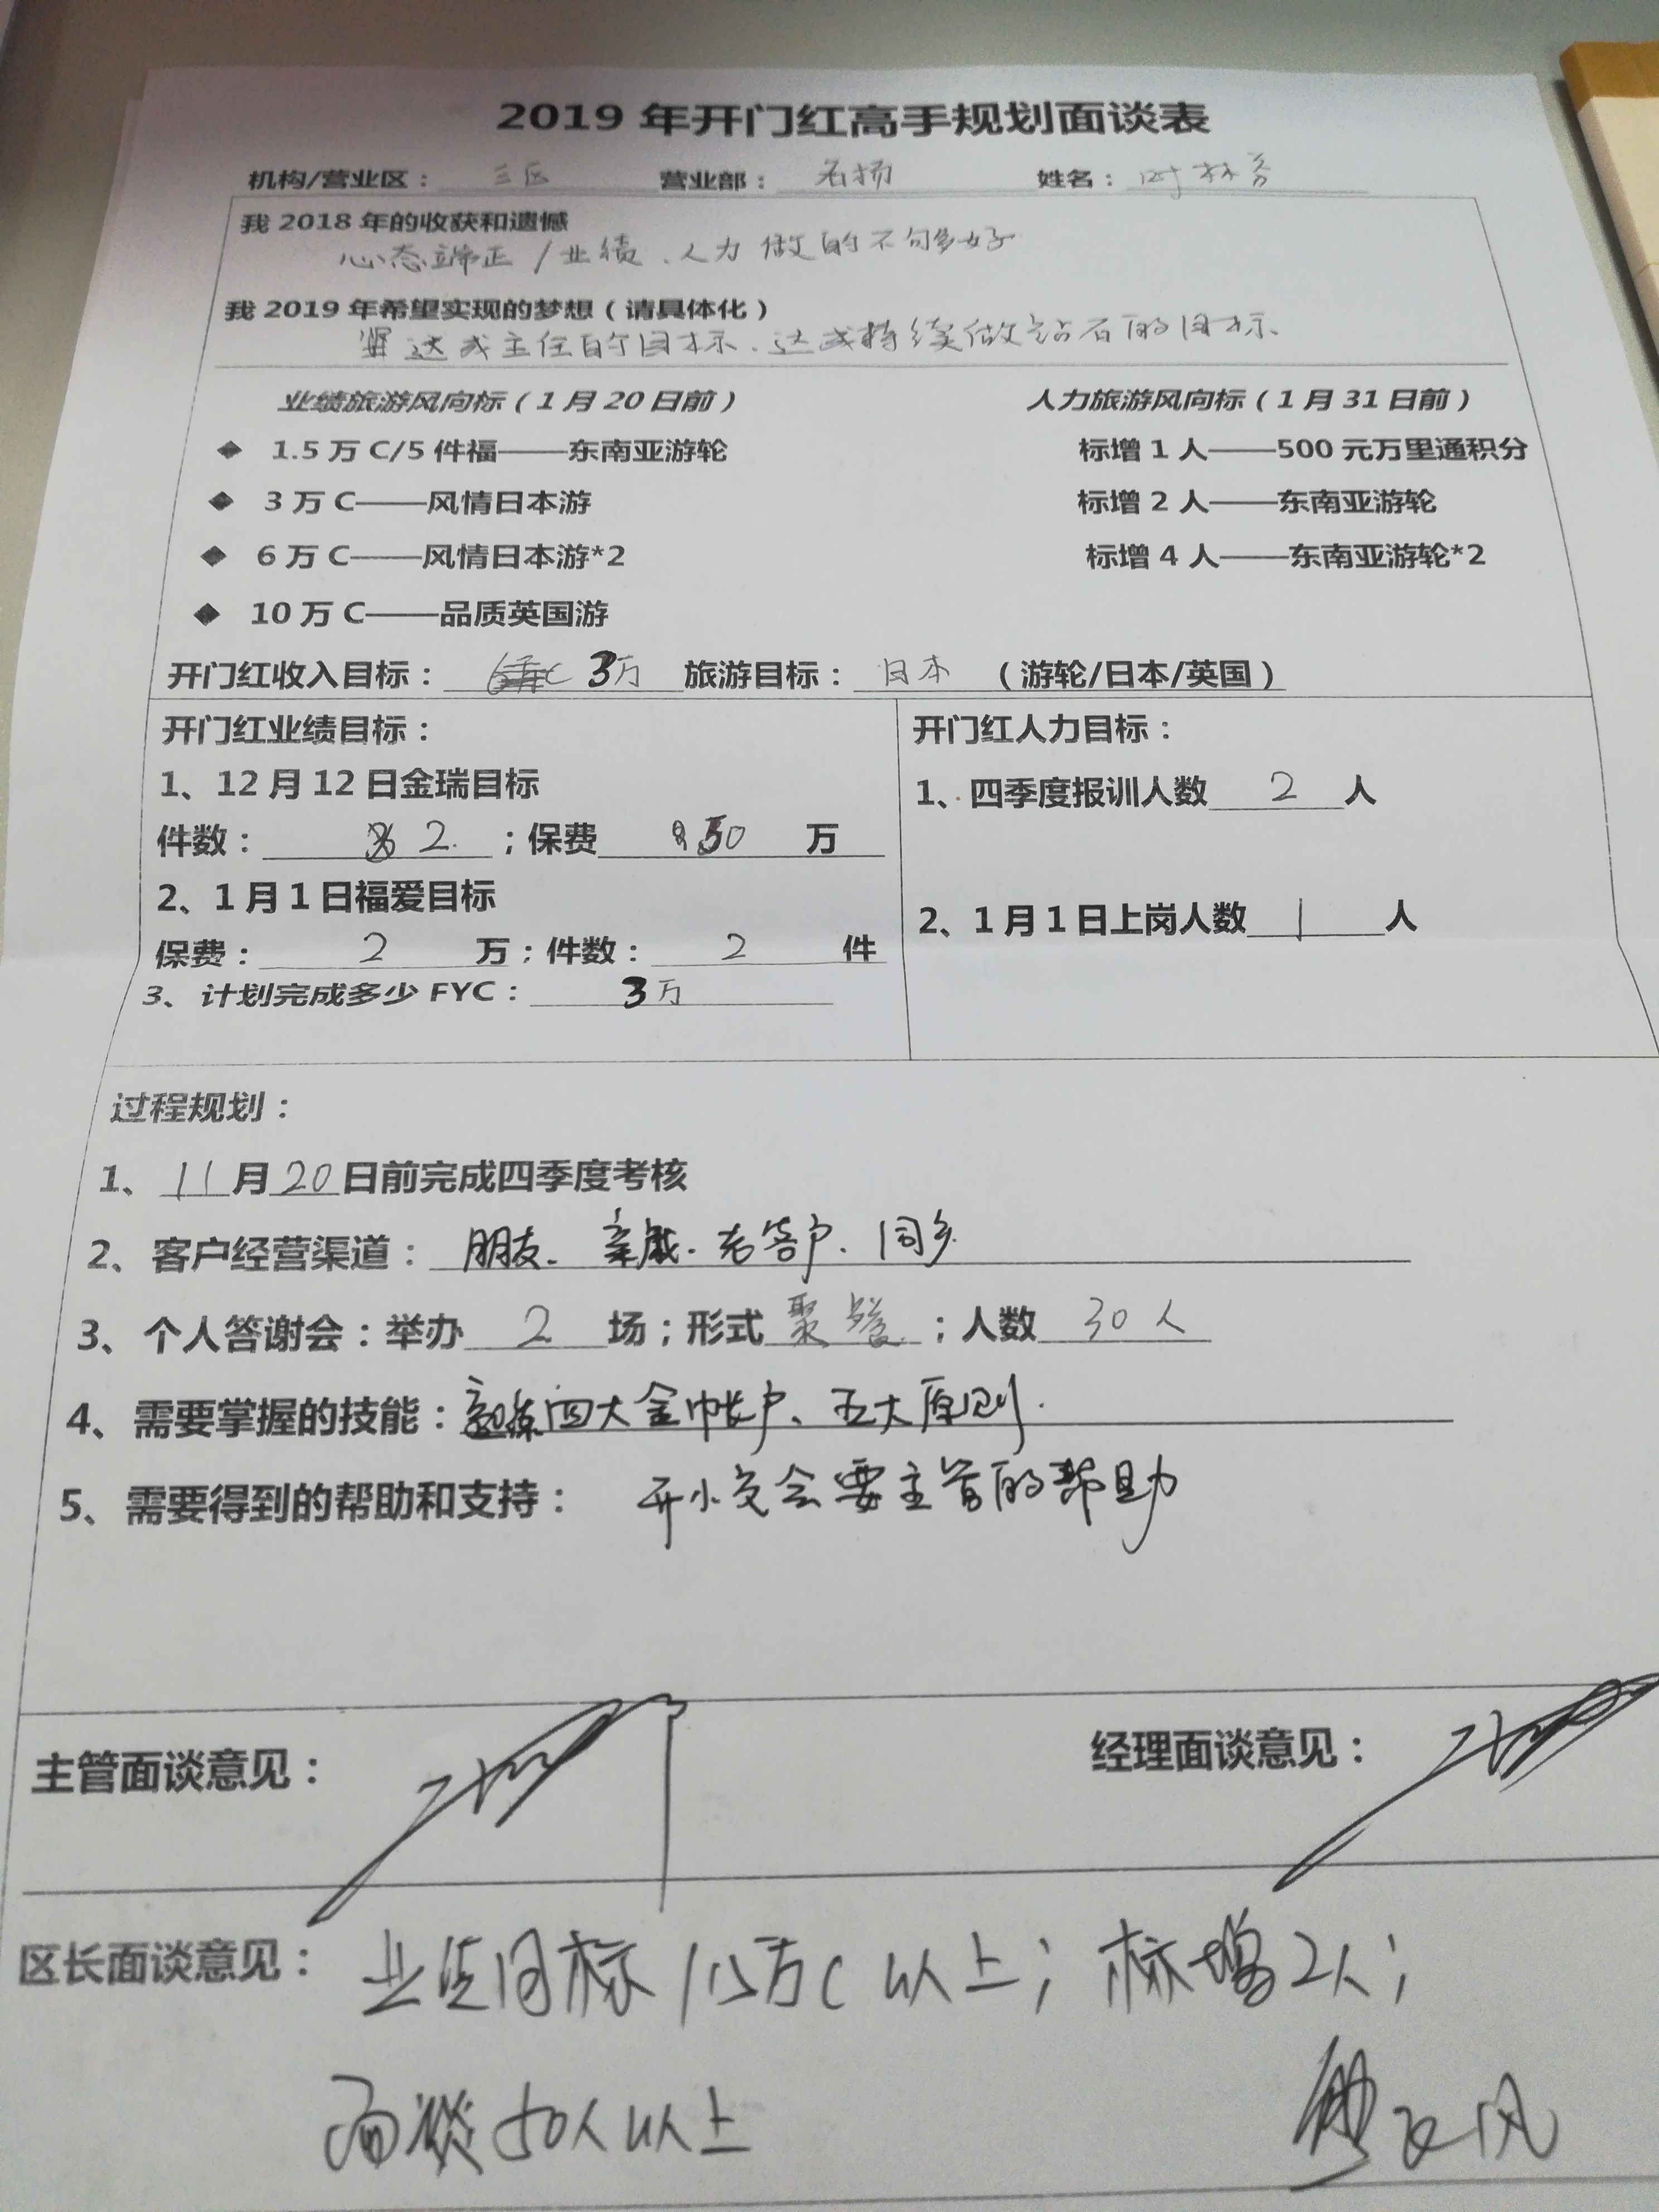 2019 年开门红高手规划面谈表
机构/营业区： 三区 营业部： 名扬 姓名： 叶林芳
我 2018 年的收获和遗憾
心态端正 / 业绩、人力 做的不够多好
我 2019 年希望实现的梦想（请具体化）
达成主任的目标、达成持续做钻石的目标、
业绩旅游风向标（1 月 20 日前） 人力旅游风向标（1 月 31 日前）
◆ 1.5 万 C/5 件福——东南亚游轮 标增 1 人——500 元万里通积分
◆ 3 万 C——风情日本游 标增 2 人——东南亚游轮
◆ 6 万 C——风情日本游*2 标增 4 人——东南亚游轮*2
◆ 10 万 C——品质英国游
开门红收入目标： 3万 旅游目标： 日本 （游轮/日本/英国）
开门红业绩目标： 开门红人力目标：
1、12 月 12 日金瑞目标 1、四季度报训人数 2 人
件数： 2 ；保费 50 万
2、1 月 1 日福爱目标 2、1 月 1 日上岗人数 1 人
保费： 2 万；件数： 2 件
3、计划完成多少 FYC： 3万
过程规划：
1、11月20日前完成四季度考核
2、客户经营渠道： 朋友、亲戚、老客户、同乡
3、个人答谢会：举办 2 场；形式 聚餐 ；人数 30人
4、需要掌握的技能：熟练四大金帐户、五大原则.
5、需要得到的帮助和支持： 开小交会要主管的帮助
主管面谈意见： 经理面谈意见：
区长面谈意见： 业绩目标 1.5万C 以上；标增2人；
面谈50人以上